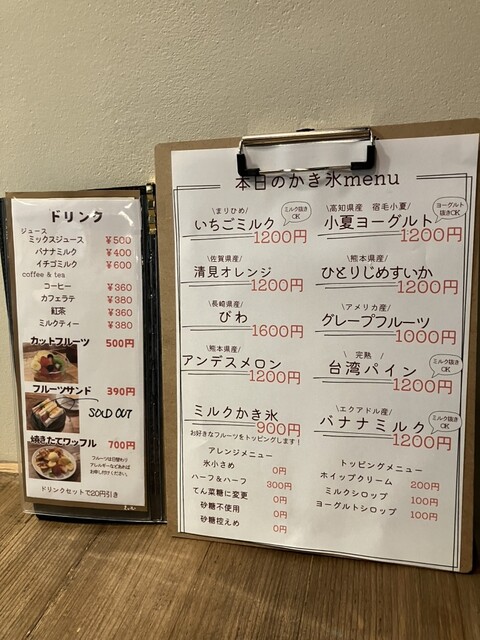 ドリンク
ジュース
ミックスジュース ¥500
バナナミルク ¥400
イチゴミルク ¥600
coffee & tea
コーヒー ¥360
カフェラテ ¥380
紅茶 ¥360
ミルクティー ¥380
カットフルーツ 500円
フルーツサンド 390円
SOLD OUT
焼きたてワッフル 700円
フルーツは日替わり
アレルギーなどあれば
お申し付けください。
ドリンクセットで20円引き
本日のかき氷menu
\まりひめ/
いちごミルク
ミルク抜き
OK
1200円
\高知県産 宿毛小夏/
小夏ヨーグルト
ヨーグルト
抜きOK
1200円
\佐賀県産/
清見オレンジ
1200円
\熊本県産/
ひとりじめすいか
1200円
\長崎県産/
びわ
1600円
\アメリカ産/
グレープフルーツ
1000円
\熊本県産/
アンデスメロン
1200円
\ 完熟 /
台湾パイン
ミルク抜き
OK
1200円
ミルクかき氷
900円
お好きなフルーツをトッピングします!
\エクアドル産/
バナナミルク
ミルク抜き
OK
1200円
アレンジメニュー
氷小さめ 0円
ハーフ&ハーフ 300円
てん菜糖に変更 0円
砂糖不使用 0円
砂糖控えめ 0円
トッピングメニュー
ホイップクリーム 200円
ミルクシロップ 100円
ヨーグルトシロップ 100円